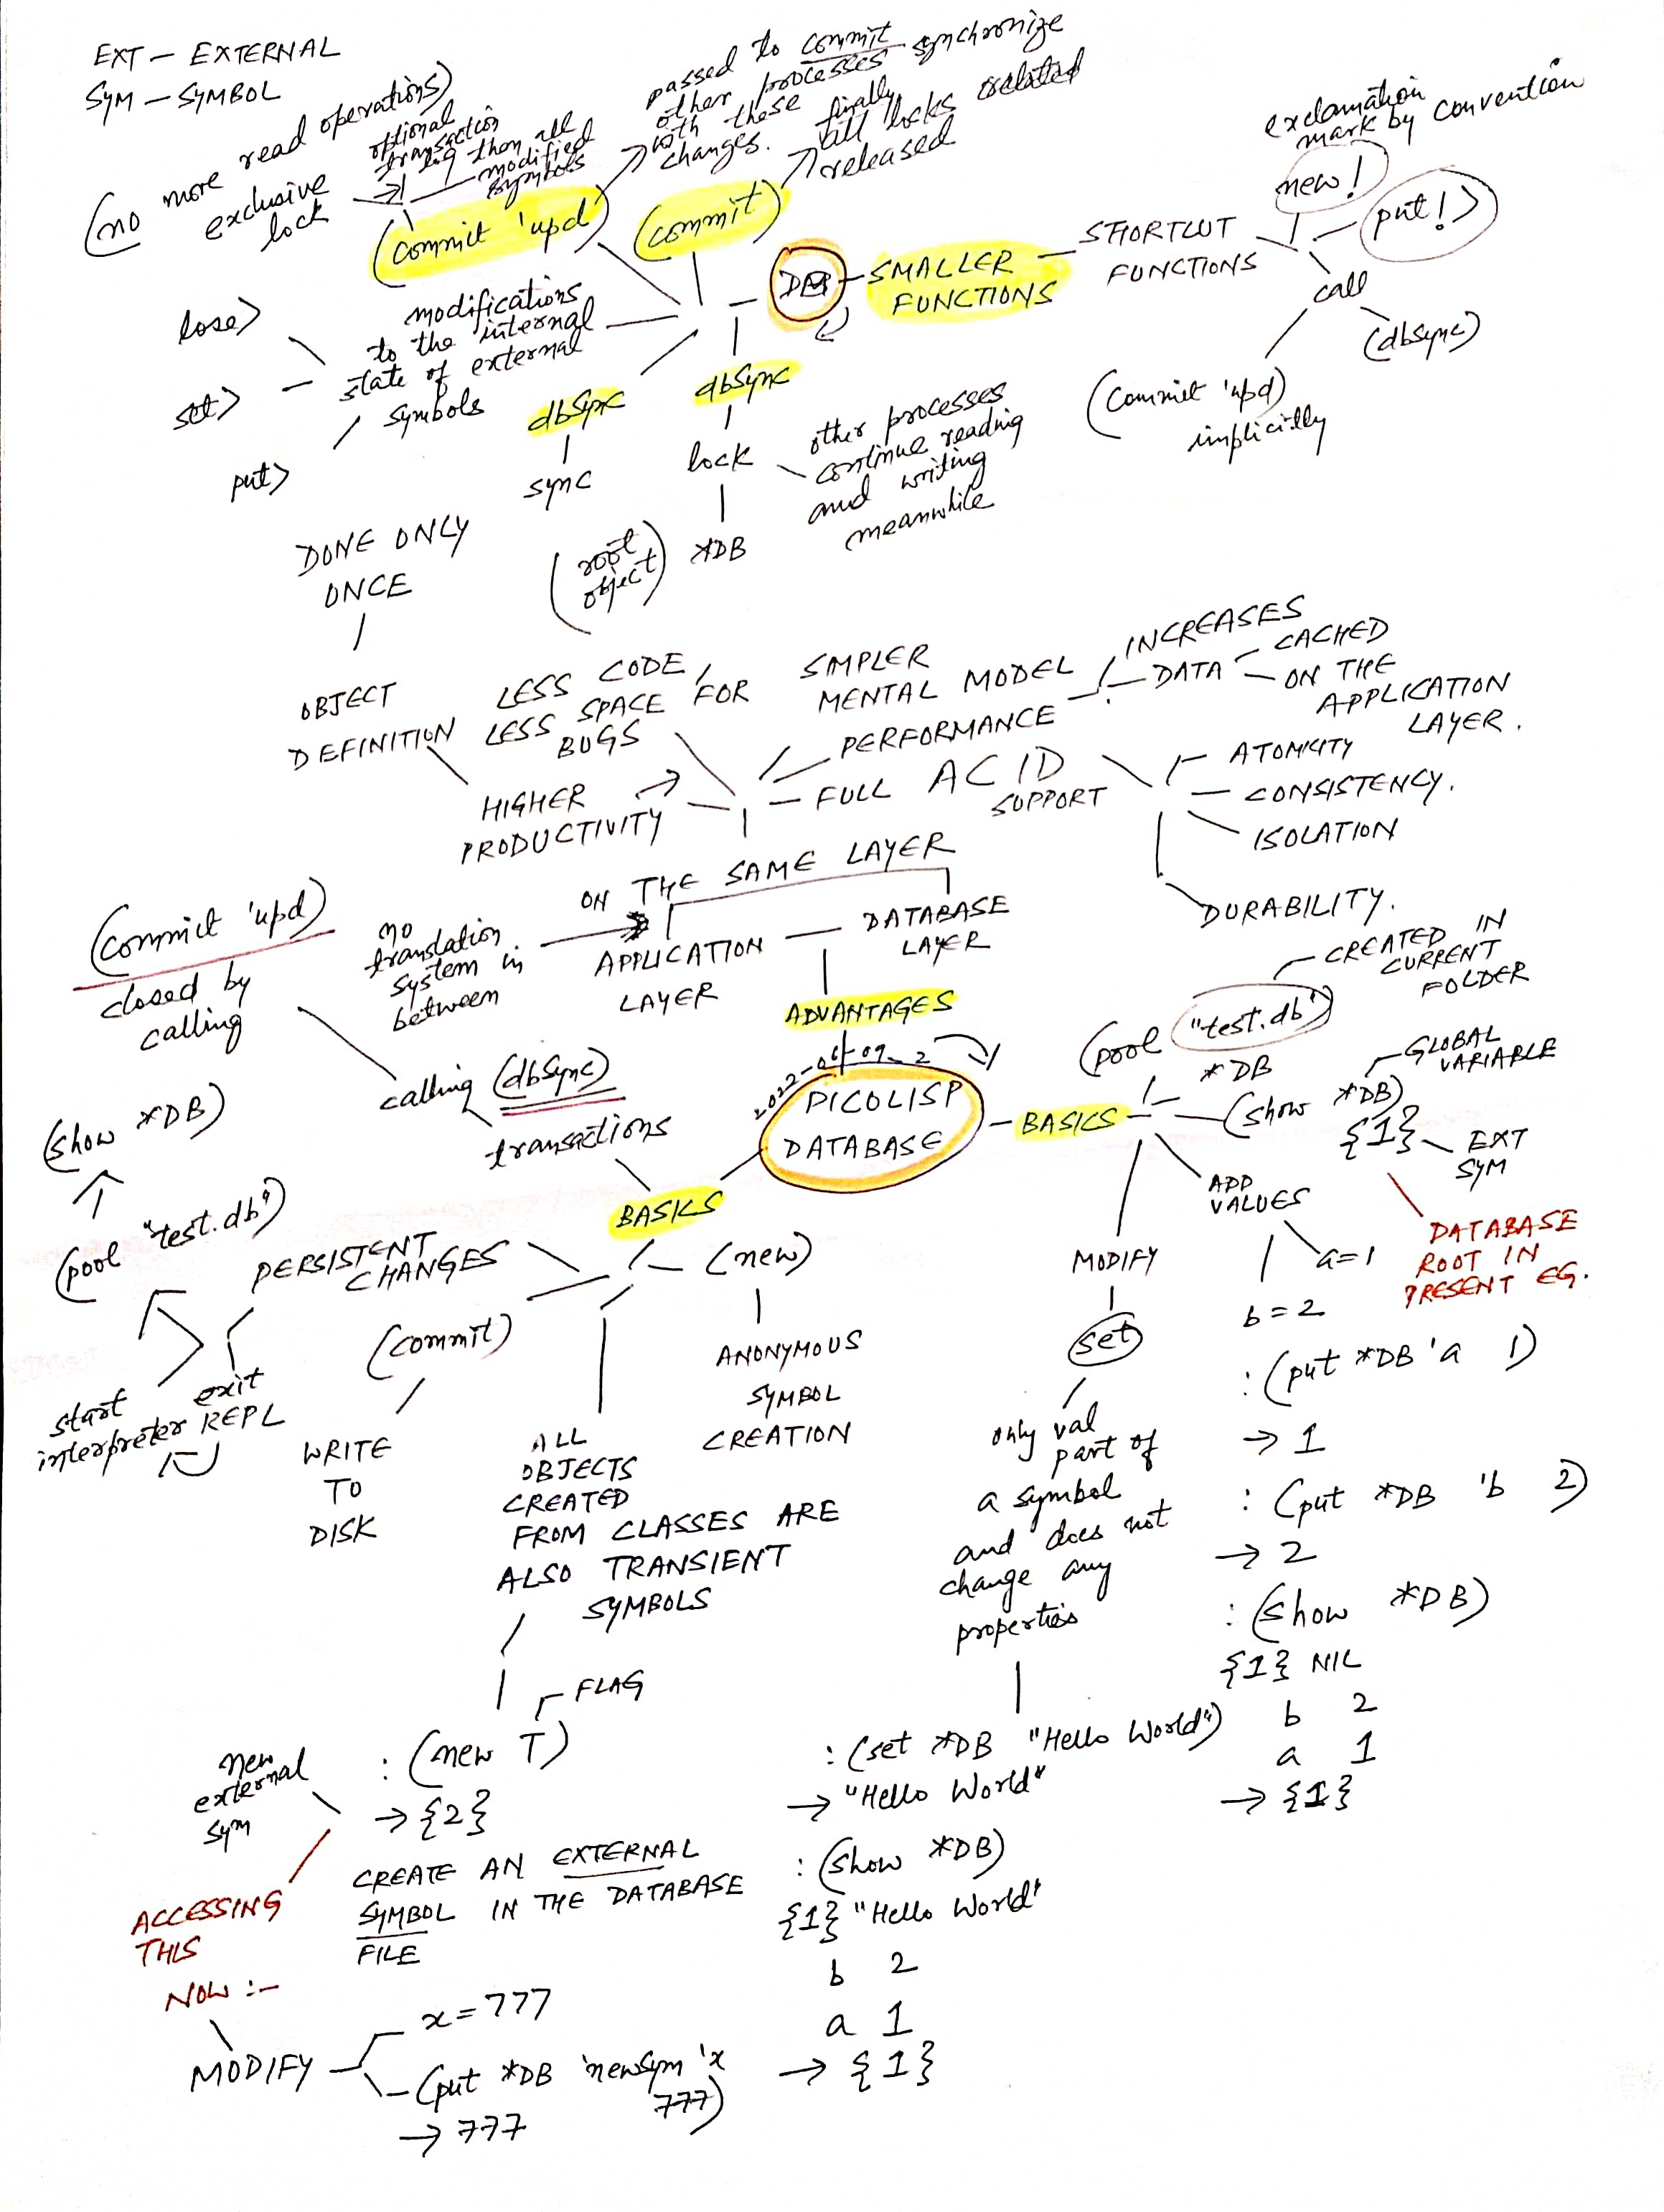 EXT — EXTERNAL
SYM — SYMBOL
(no more read operations)
exclusive
lock
optional
transaction
log then all
modified
symbols
(commit 'upd)
passed to commit
other processes synchronize
with these
changes.
finally
all locks related
released
(commit)
DB
SMALLER
FUNCTIONS
SHORTCUT
FUNCTIONS
exclamation
mark by convention
new!
put!>
call
(dbSync)
(commit 'upd)
implicitly
lose>
set>
put>
modifications
to the internal
state of external
symbols
dbSync
sync
dbSync
lock
*DB
(root
object)
other processes
continue reading
and writing
meanwhile
DONE ONLY
ONCE
OBJECT
DEFINITION
LESS CODE,
LESS SPACE FOR
BUGS
SIMPLER
MENTAL MODEL
INCREASES
PERFORMANCE
DATA
CACHED
ON THE
APPLICATION
LAYER.
HIGHER
PRODUCTIVITY
FULL ACID
SUPPORT
ATOMICITY
CONSISTENCY.
ISOLATION
DURABILITY.
ON THE SAME LAYER
no
translation
system in
between
APPLICATION
LAYER
DATABASE
LAYER
ADVANTAGES
(commit 'upd)
closed by
calling
calling (dbSync)
transactions
2022-06-09_2
PICOLISP
DATABASE
BASICS
(pool "test.db")
CREATED IN
CURRENT
FOLDER
*DB
GLOBAL
VARIABLE
(show *DB)
{1}
EXT
SYM
DATABASE
ROOT IN
PRESENT EG.
ADD
VALUES
a=1
b=2
MODIFY
set
only val
part of
a symbol
and does not
change any
properties
: (put *DB 'a 1)
→ 1
: (put *DB 'b 2)
→ 2
: (show *DB)
{1} NIL
b 2
a 1
→ {1}
: (set *DB "Hello World")
→ "Hello World"
: (show *DB)
{1} "Hello World"
b 2
a 1
→ {1}
BASICS
(show *DB)
(pool "test.db")
PERSISTENT
CHANGES
start
interpreter
exit
REPL
(commit)
WRITE
TO
DISK
(new)
ANONYMOUS
SYMBOL
CREATION
ALL
OBJECTS
CREATED
FROM CLASSES ARE
ALSO TRANSIENT
SYMBOLS
FLAG
: (new T)
→ {2}
new
external
sym
CREATE AN EXTERNAL
SYMBOL IN THE DATABASE
FILE
ACCESSING
THIS
NOW :-
MODIFY
x=777
(put *DB 'newSym 'x
777)
→ 777